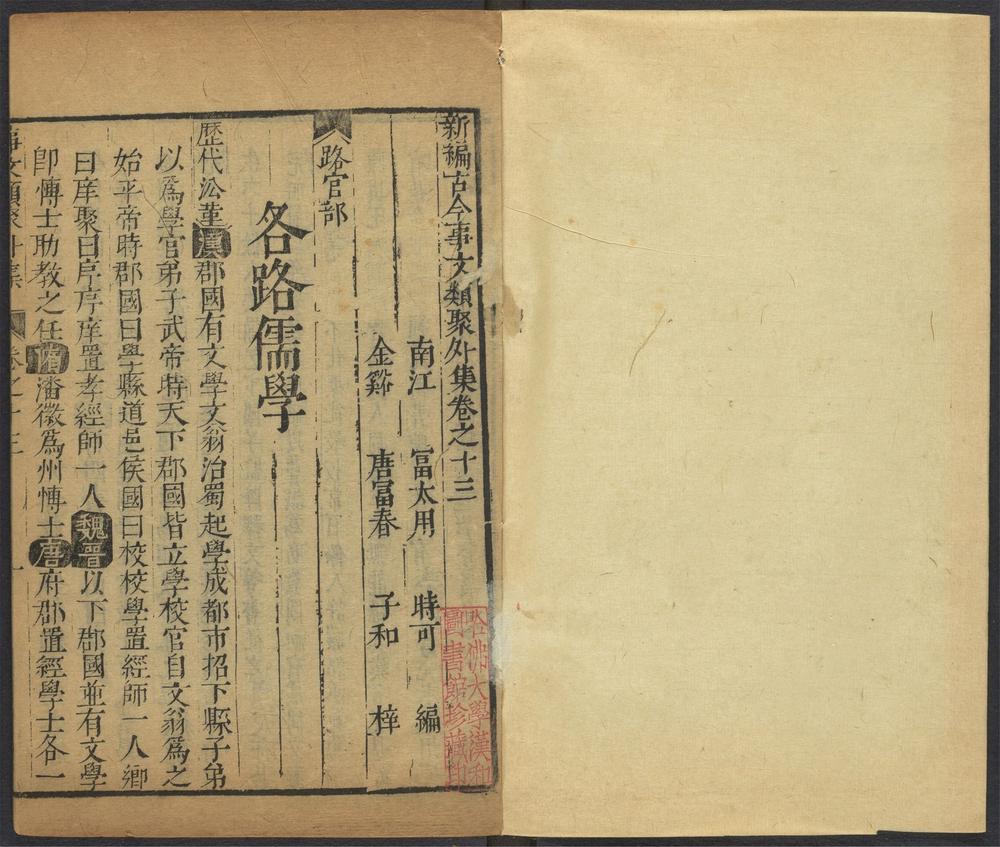 新編古今事文類聚外集卷之十三
南江 富大用 時可 編
金谿 唐富春 子和 梓
路官部
各路儒學
歷代沿革漢郡國有文學文翁治蜀起學成都市招下縣子弟
以爲學官弟子武帝時天下郡國皆立學校官自文翁爲之
始平帝時郡國曰學縣道邑侯國曰校校學置經師一人鄉
曰庠聚曰序序庠置孝經師一人魏晉以下郡國並有文學
卽博士助教之任隋潘徽爲州博士唐府郡置經學士各一
事文類聚外集 卷之十三 一
哈佛大學漢和
圖書館珍藏印